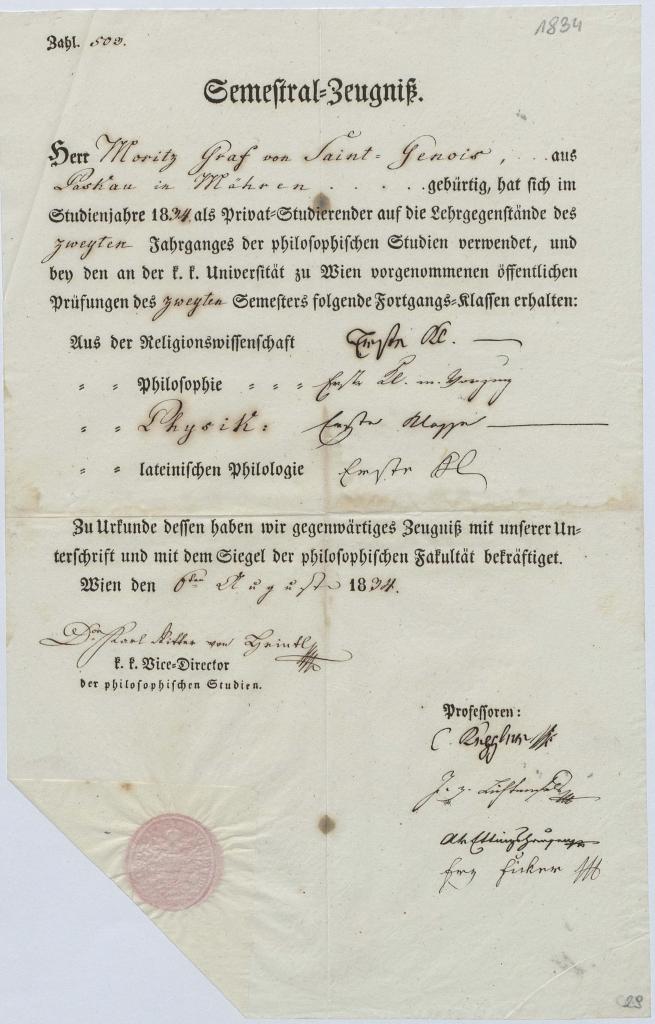 1834
Zahl. 503.
Semestral-Zeugniß.
Herr Moritz Graf von Saint-Genois, . . aus
Paskau in Mähren . . . . . gebürtig, hat sich im
Studienjahre 1834 als Privat-Studierender auf die Lehrgegenstände des
zweyten Jahrganges der philosophischen Studien verwendet, und
bey den an der k. k. Universität zu Wien vorgenommenen öffentlichen
Prüfungen des zweyten Semesters folgende Fortgangs-Klassen erhalten:
Aus der Religionswissenschaft Erste Kl.
" " Philosophie " " " Erste Kl. m. Vorzug
" " Physik: Erste Klasse
" " lateinischen Philologie Erste Kl
Zu Urkunde dessen haben wir gegenwärtiges Zeugniß mit unserer Un-
terschrift und mit dem Siegel der philosophischen Fakultät bekräftiget.
Wien den 6ten August 1834.
Karl Ritter von Heintl
k. k. Vice-Director
der philosophischen Studien.
Professoren:
J. v. Lichtenfels
A v Ettingshausen
Franz Ficker
29